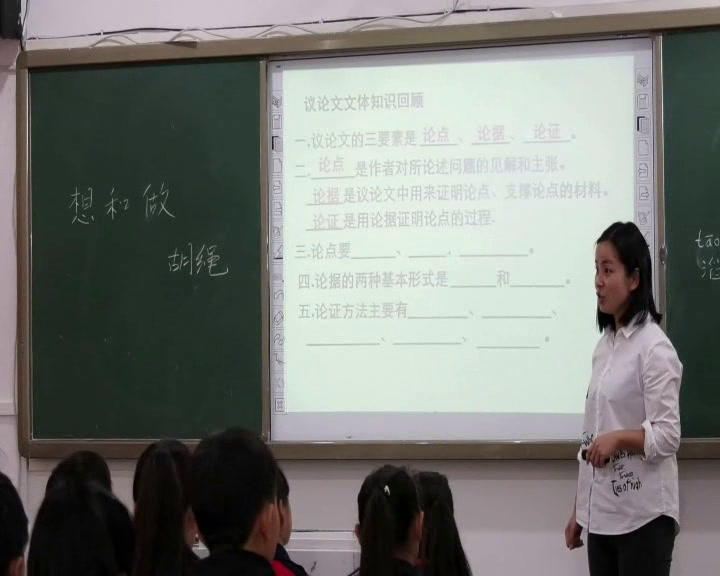 想和做
胡绳
议论文文体知识回顾
一.议论文的三要素是 论点 、 论据 、 论证 。
二. 论点 是作者对所论述问题的见解和主张。
论据 是议论文中用来证明论点、支撑论点的材料。
论证 是用论据证明论点的过程.
三.论点要______、______,________。
四.论据的两种基本形式是______和_______。
五.论证方法主要有________、_________、
_________、_________、________。
tāo
滔